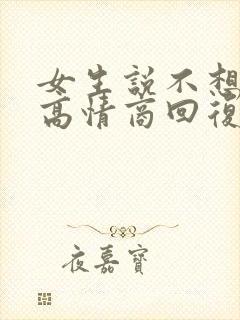 女生說不想
高情商回復
夜嘉寶